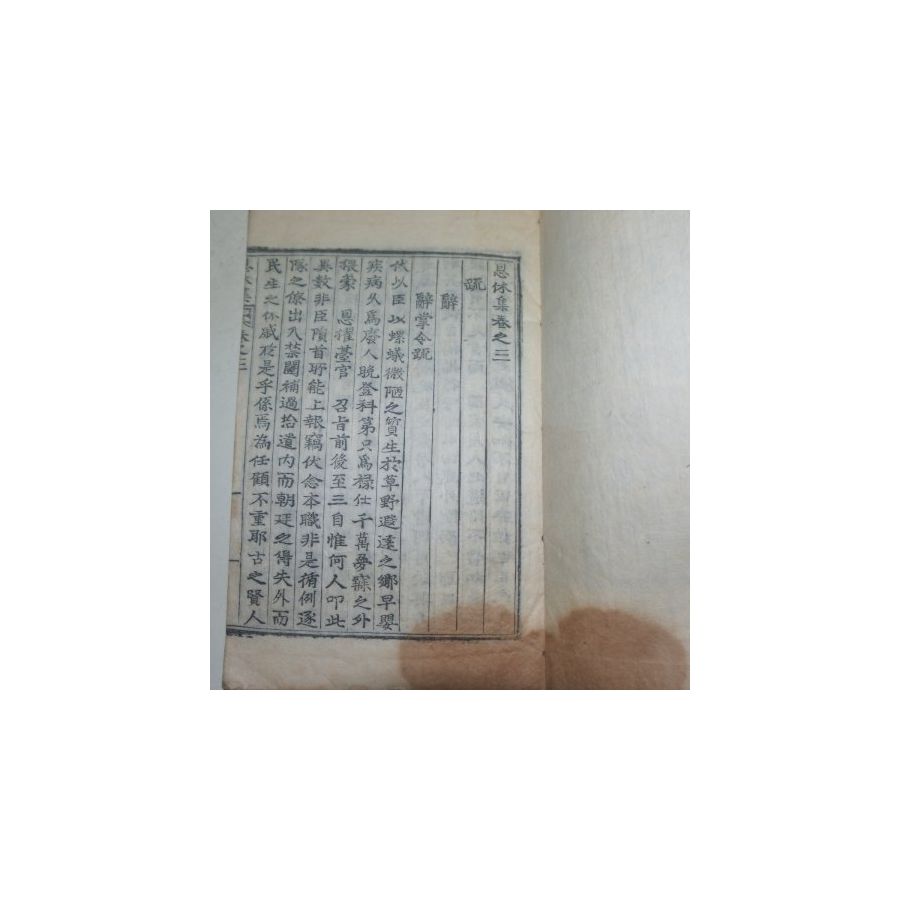 息休集卷之三
疏
辭
辭掌令疏
伏以臣以螻蟻微陋之質生於草野遐遠之鄕早嬰
疾病久爲廢人晩登科第只爲祿仕千萬夢寐之外
猥蒙 恩擢臺官 召旨前後至三自惟何人叨此
異數非臣隕首所能上報竊伏念本職非是循例逐
隊之僚出入禁闥補過拾遺內而朝廷之得失外而
民生之休戚於是乎係焉為任顧不重耶古之賢人
卷之三